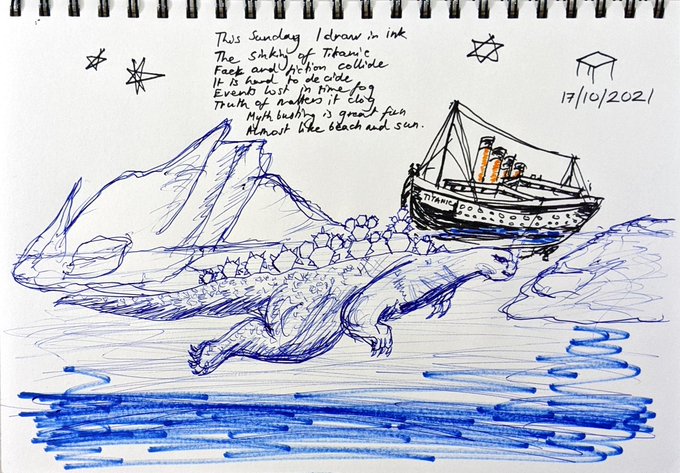 This Sunday I draw in ink
The Sinking of Titanic
Fact and fiction collide
It is hard to decide
Events lost in time fog
Truth of matters it clog
Myth busting is great fun
Almost like beach and sun.
17/10/2021
TITANIC